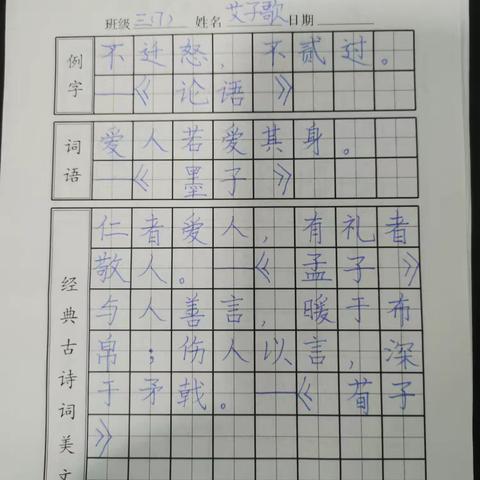 班级 三(7) 姓名 艾子歌 日期
例字
不迁怒，不贰过。
——《论语》
词语
爱人若爱其身。
——《墨子》
经典古诗词美文
仁者爱人，有礼者
敬人。——《孟子》
与人善言，暖于布
帛；伤人以言，深
于矛戟。——《荀子
》